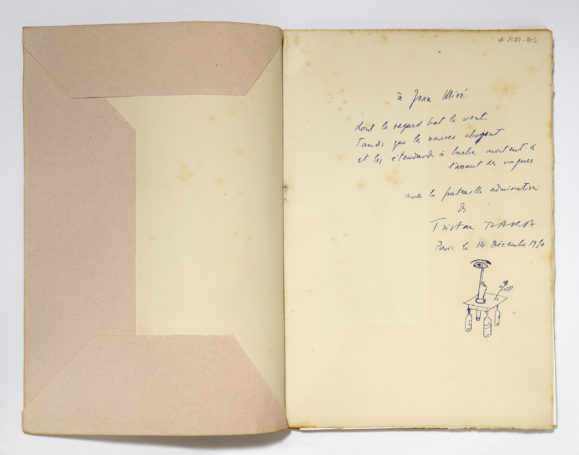 à Joan Miró
dont le regard bat le vent
tandis que les navires aboyent
et les étendards à barbe montent à
l'assaut des vagues
avec la fraternelle admiration
de
Tristan TZARA
Paris le 14 Décembre 1930